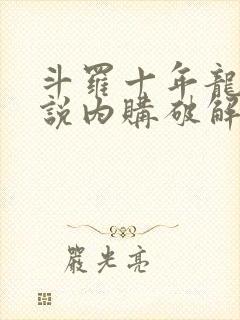 斗羅十年龍
說内購破解
嚴光亮